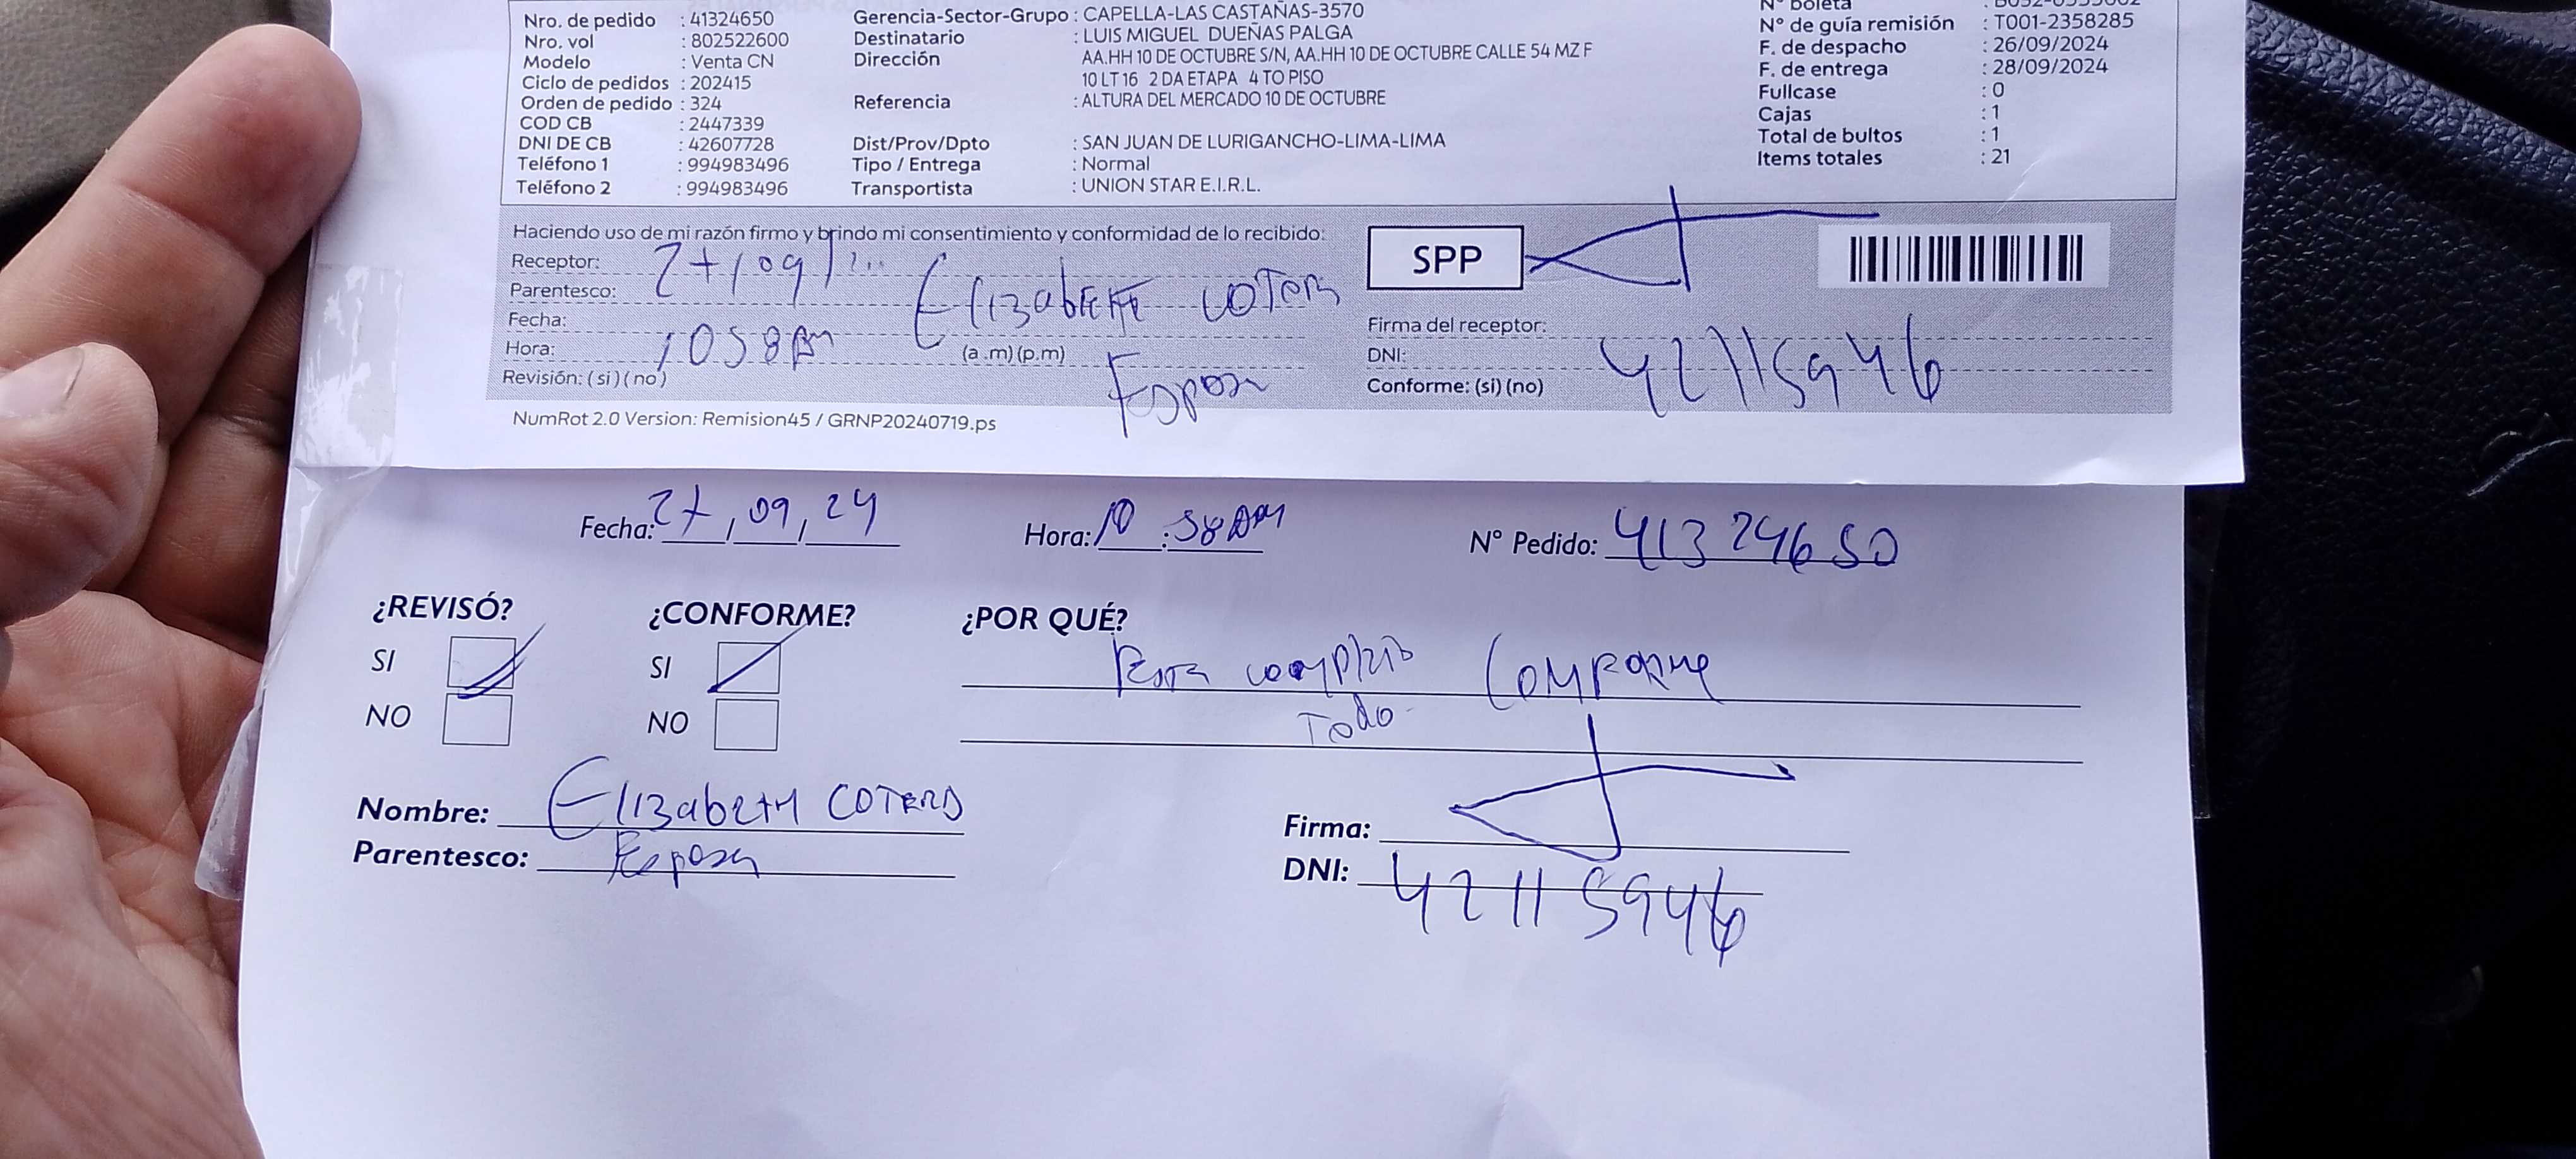 Nro. de pedido : 41324650
Nro. vol : 802522600
Modelo : Venta CN
Ciclo de pedidos : 202415
Orden de pedido : 324
COD CB : 2447339
DNI DE CB : 42607728
Teléfono 1 : 994983496
Teléfono 2 : 994983496
Gerencia-Sector-Grupo : CAPELLA-LAS CASTAÑAS-3570
Destinatario : LUIS MIGUEL DUEÑAS PALGA
Dirección AA.HH 10 DE OCTUBRE S/N, AA.HH 10 DE OCTUBRE CALLE 54 MZ F
10 LT 16 2 DA ETAPA 4 TO PISO
Referencia : ALTURA DEL MERCADO 10 DE OCTUBRE
Dist/Prov/Dpto : SAN JUAN DE LURIGANCHO-LIMA-LIMA
Tipo / Entrega : Normal
Transportista : UNION STAR E.I.R.L.
N° boleta
N° de guía remisión : T001-2358285
F. de despacho : 26/09/2024
F. de entrega : 28/09/2024
Fullcase : 0
Cajas : 1
Total de bultos : 1
Items totales : 21
Haciendo uso de mi razón firmo y brindo mi consentimiento y conformidad de lo recibido:
Receptor:
Parentesco: Elizabeth
Fecha:
Hora: 1058 Am (a .m) (p.m)
Revisión: (si) (no) Esposa
SPP
Firma del receptor:
DNI: 42115946
Conforme: (si) (no)
NumRot 2.0 Version: Remision45 / GRNP20240719.ps
Fecha: 27, 09, 24 Hora: 10 : 58 Am N° Pedido: 41324650
¿REVISÓ? ¿CONFORME? ¿POR QUÉ?
SI SI Esta completo Conforme
NO NO Todo
Nombre: Elizabeth COTERA
Parentesco: Esposa
Firma:
DNI: 42115946